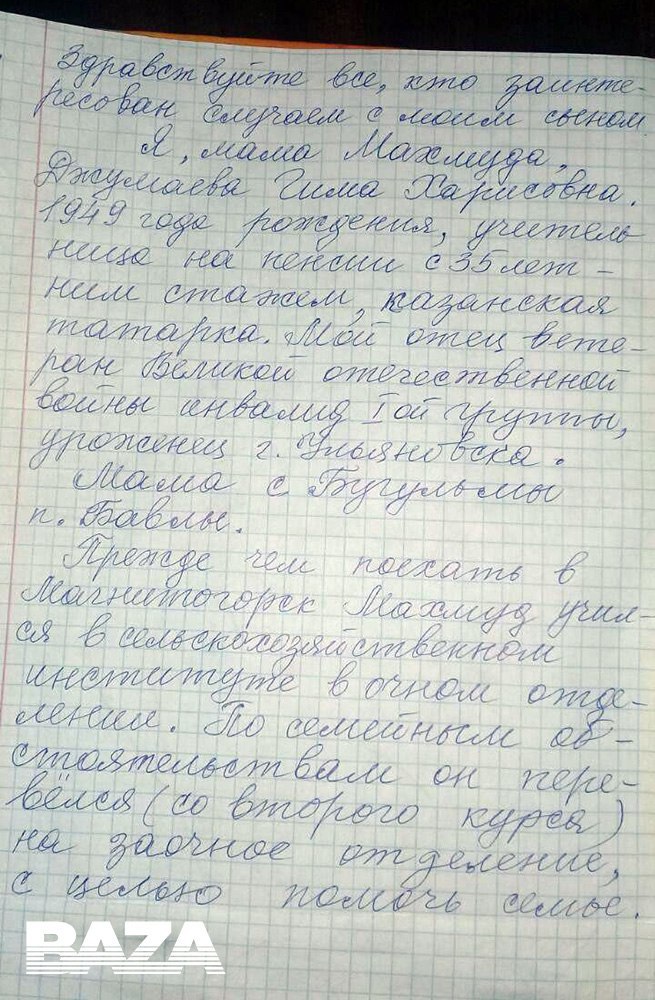 Здравствуйте все, кто заинте-
ресован случаем с моим сыном
Я, мама Махмуда,
Джумаева Гима Харисовна.
1949 года рождения, учитель
ница на пенсии с 35 лет-
ним стажем, казанская
татарка. Мой отец вете-
ран Великой отечественной
войны инвалид I ой группы,
уроженец г. Ульяновска.
Мама с Бугульмы
п. Бавлы.
Прежде чем поехать в
Магнитогорск Махмуд учил-
ся в сельскохозяйственном
институте в очном отде-
лении. По семейным об-
стоятельствам он пере-
вёлся (со второго курса)
на заочное отделение,
с целью помочь семье.
BAZA